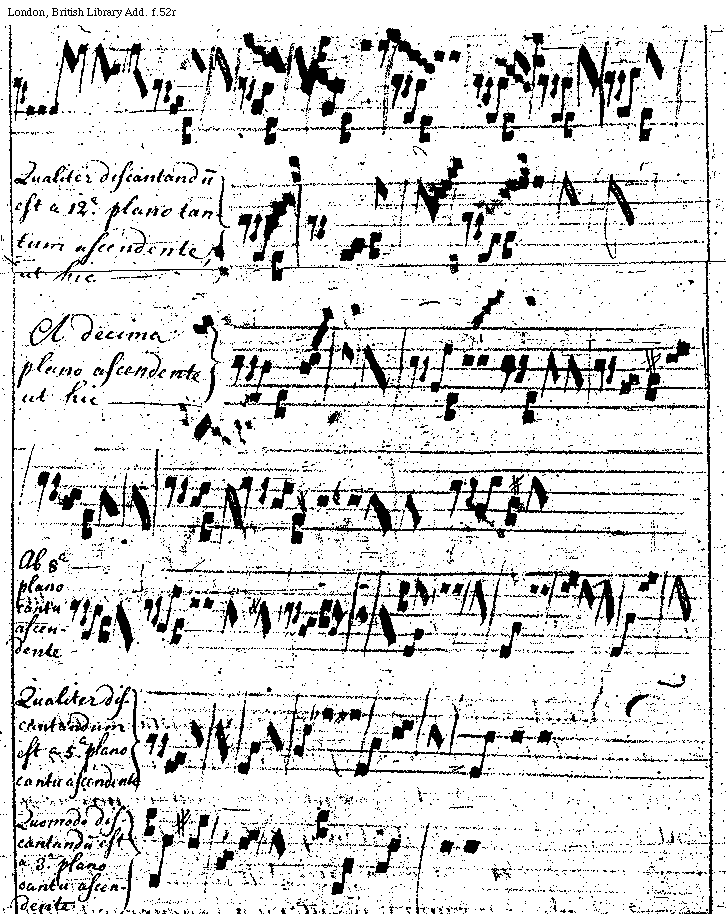 London, British Library Add. f.52r
Qualiter discantandū
est a 12.ͣ plano can
tum ascendente,
ut hic
A decima
plano ascendente
ut hic
Ab 8.ͣ
plano
cantu
ascen-
dente
Qualiter dis-
cantandum
est a 5.ͣ plano
cantu ascendente
Quomodo dis-
cantandū est
a 3.ͣ plano
cantu ascen-
dente